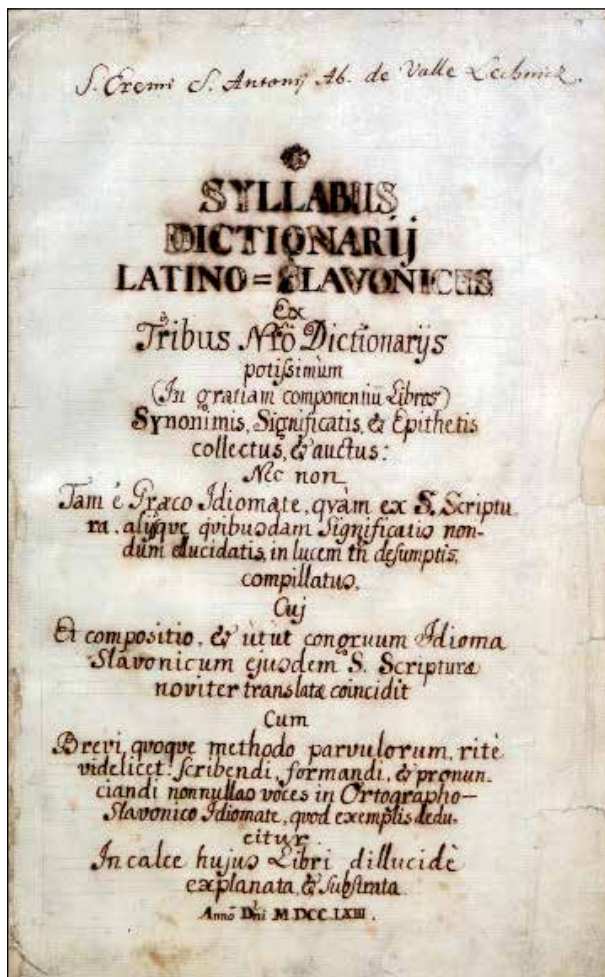 S. Eremi S. Antonij Ab. de Valle Lechnicz.
SYLLABUS
DICTIONARIJ
LATINO=SLAVONICUS
Ex
Tribus Nr̃õ Dictionarijs
potissimùm
(In gratiam componentiũ Libros)
Synonimis, Significatis, & Epithetis
collectus, & auctus:
Nec non
Tam é Græco Idiomate, qvàm ex S. Scriptu-
ra, alijsque qvibusdam Significatis non-
dum elucidatis, in lucem tñ desumptis,
compillatus.
Cuj
Et compositio, & ùtùt congruum Idioma
Slavonicum ejusdem S. Scripturæ
noviter translatæ coincidit
Cum
Brevi, quoque methodo parvulorum, ritè
videlicet: scribendi, formandi, & pronun-
ciandi nonnullas voces in Ortographo-
Slavonico Idiomate, quod exemplis dedu-
citur.
In calce hujus Libri dillucidè
explanata, & substrata.
Anno Dñi MDCC.LXIII.